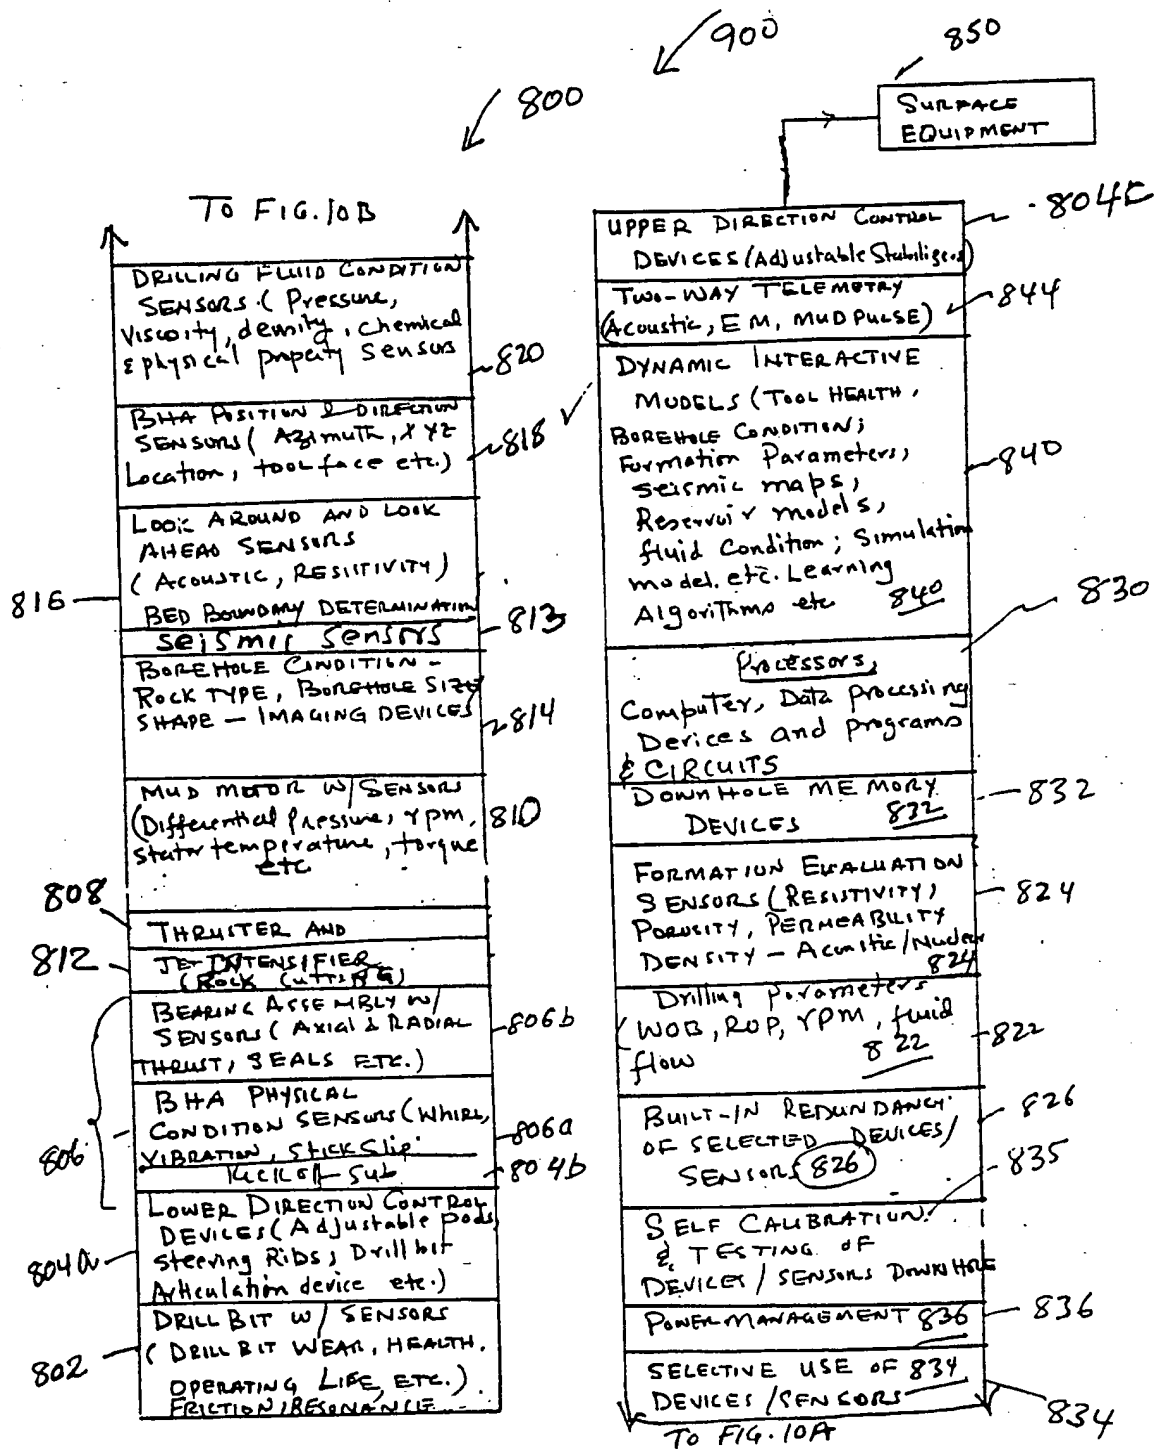 900
850
SURFACE
EQUIPMENT
800
TO FIG. 10B
DRILLING FLUID CONDITION
SENSORS (Pressure,
Viscosity, density, chemical
& physical property sensors
820
BHA POSITION & DIRECTION
SENSORS (Azimuth, XYZ
Location, tool face etc.)
818
LOOK AROUND AND LOOK
AHEAD SENSORS
(ACOUSTIC, RESISTIVITY)
BED BOUNDARY DETERMINATION
816
Seismic Sensors
813
BOREHOLE CONDITION -
ROCK TYPE, BOREHOLE SIZE
SHAPE - IMAGING DEVICES
814
MUD MOTOR W/ SENSORS
(Differential Pressure, rpm,
stator temperature, torque
etc
810
808
THRUSTER AND
812
JET INTENSIFIER
(ROCK CUTTING)
BEARING ASSEMBLY W/
SENSORS (AXIAL & RADIAL
THRUST, SEALS ETC.)
806b
BHA PHYSICAL
CONDITION SENSORS (WHIRL,
VIBRATION, STICK SLIP
806a
806
Kick off Sub
804b
LOWER DIRECTION CONTROL
DEVICES (Adjustable pads
Steering Ribs, Drill bit
Articulation device etc.)
804a
DRILL BIT W/ SENSORS
(DRILL BIT WEAR, HEALTH,
OPERATING LIFE, ETC.)
FRICTION/RESONANCE
802
UPPER DIRECTION CONTROL
DEVICES (Adjustable Stabilizers)
804c
TWO-WAY TELEMETRY
(Acoustic, EM, MUD PULSE)
844
DYNAMIC INTERACTIVE
MODELS (TOOL HEALTH,
BOREHOLE CONDITION;
Formation Parameters,
Seismic maps,
Reservoir models,
fluid Condition; Simulation
model. etc. Learning
Algorithms etc 840
840
830
Processors,
Computer, Data processing
Devices and programs
& CIRCUITS
DOWNHOLE MEMORY
DEVICES 832
832
FORMATION EVALUATION
SENSORS (RESISTIVITY,
POROSITY, PERMEABILITY
DENSITY - Acoustic/Nuclear
824
824
Drilling Parameters
(WOB, ROP, rpm, fluid
flow 822
822
BUILT-IN REDUNDANCY
OF SELECTED DEVICES/
SENSORS 826
826
835
SELF CALIBRATION
& TESTING OF
DEVICES/SENSORS DOWNHOLE
POWER MANAGEMENT 836
836
SELECTIVE USE OF 834
DEVICES/SENSORS
834
TO FIG. 10A